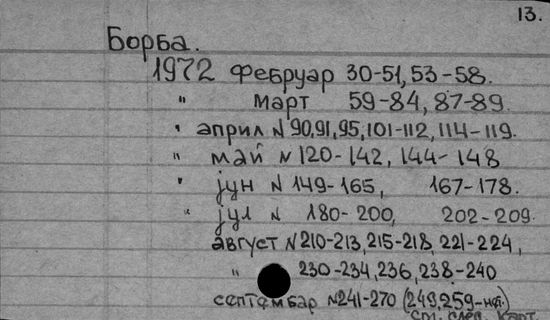 13.
Борба.
1972 фебруар 30-51, 53-58.
" март 59-84, 87-89.
" април N 90,91,95,101-112, 114-119.
" май N 120-142, 144-148
" јун N 149-165, 167-178.
" јул N 180-200, 202-209.
август N 210-213, 215-218, 221-224,
" 230-234, 236, 238-240
септембар N 241-270 (249,259-нет.)
См. след. карт.